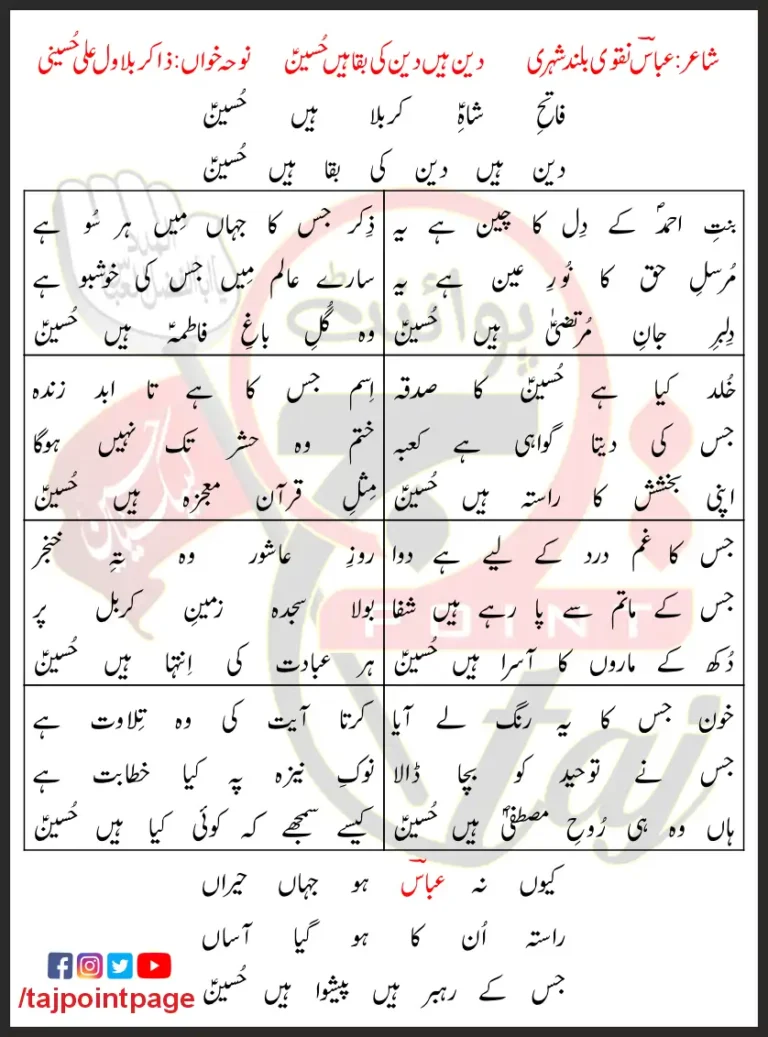 شاعر: عباسؔ نقوی بلند شہری دین ہیں دین کی بقا ہیں حُسینؑ نوحہ خواں: ذاکر بلاول علی حُسینی
فاتحِ شاہِؑ کربلا ہیں حُسینؑ
دین ہیں دین کی بقا ہیں حُسینؑ
بنتِ احمدؐ کے دِل کا چین ہے یہ
مُرسلِ حق کا نُورِ عین ہے یہ
دِلبرِ جانِ مُرتضیٰؑ ہیں حُسینؑ
ذِکر جس کا جہاں مِیں ہر سُو ہے
سارے عالم مِیں جس کی خوشبو ہے
وہ گُلِ باغِ فاطمہؑ ہیں حُسینؑ
خُلد کیا ہے حُسینؑ کا صدقہ
جس کی دیتا گواہی ہے کعبہ
اپنی بخشش کا راستہ ہیں حُسینؑ
اِسم جس کا ہے تا ابد زندہ
ختم وہ حشر تک نہیں ہوگا
مِثلِ قرآن معجزہ ہیں حُسینؑ
جس کا غم درد کے لیے ہے دوا
جس کے ماتم سے پا رہے ہیں شفا
دُکھ کے ماروں کا آسرا ہیں حُسینؑ
روزِ عاشور وہ تہِ خنجر
بولا سجدہ زمینِ کربل پر
ہر عبادت کی اِنتہا ہیں حُسینؑ
خون جس کا یہ رنگ لے آیا
جس نے توحید کو بچا ڈالا
ہاں وہ ہی رُوحِ مصطفیٰؐ ہیں حُسینؑ
کرتا آیت کی وہ تِلاوت ہے
نوکِ نیزہ پہ کیا خطابت ہے
کیسے سمجھے کہ کوئی کیا ہیں حُسینؑ
کیوں نہ عباسؔ ہو جہاں حیراں
راستہ اُن کا ہو گیا آساں
جس کے رہبر ہیں پیشوا ہیں حُسینؑ
/tajpointpage
پوائنٹ
POINT
taj
لبیک یا حسین